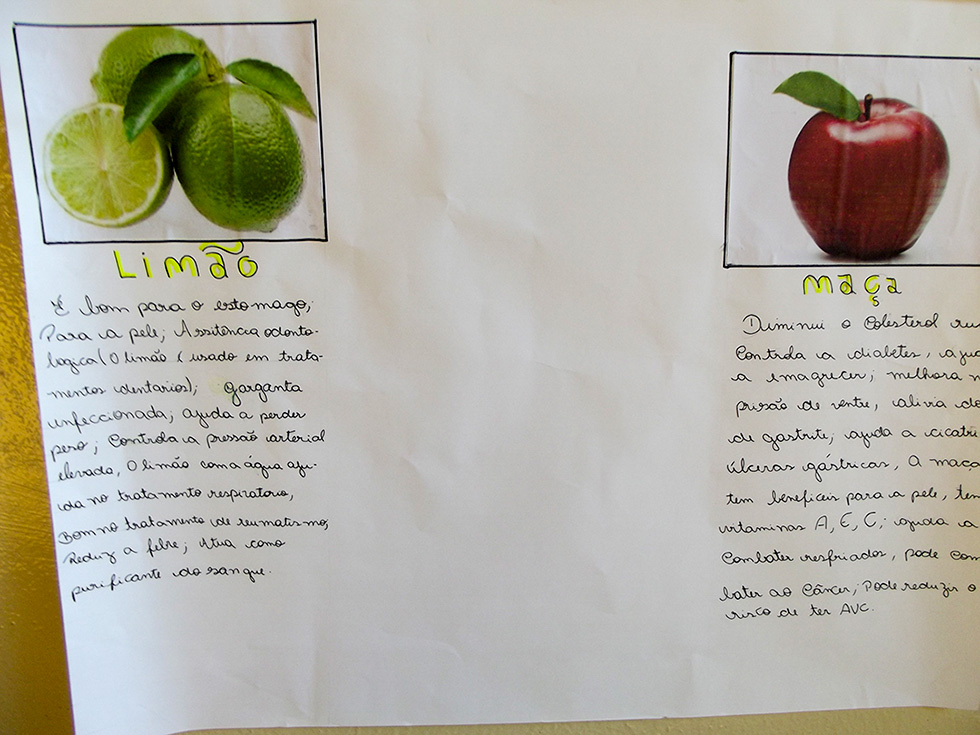 Limão
É bom para o estomago;
Para a pele; Assitência odonto-
logica (O limão é usado em trata-
mentos dentarios); garganta
infeccionada; ajuda a perder
peso; Controla a pressão arterial
elevada, O limão com a água aju-
da no tratamento respiratorio,
Bom no tratamento de reumatismo,
Reduz a febre; Atua como
purificante do sangue.
maça
Diminui o Colesterol
Controla a diabetes,
a emagrecer; melhora
prisão de ventre, alivia
de gastrite; ajuda a
úlceras gástricas, A
tem beneficeis para a pele,
vitaminas A, E, C; ajuda a
Combater resfriados, pode Com
bater ao Câncer; Pode reduzir o
risco de ter AVC.